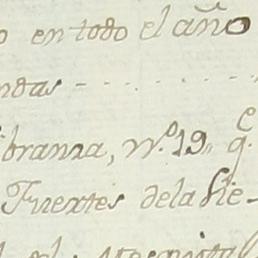 o en todo el año
ndas
branza, N.º 19, q.e
Fuertes de la Ste-